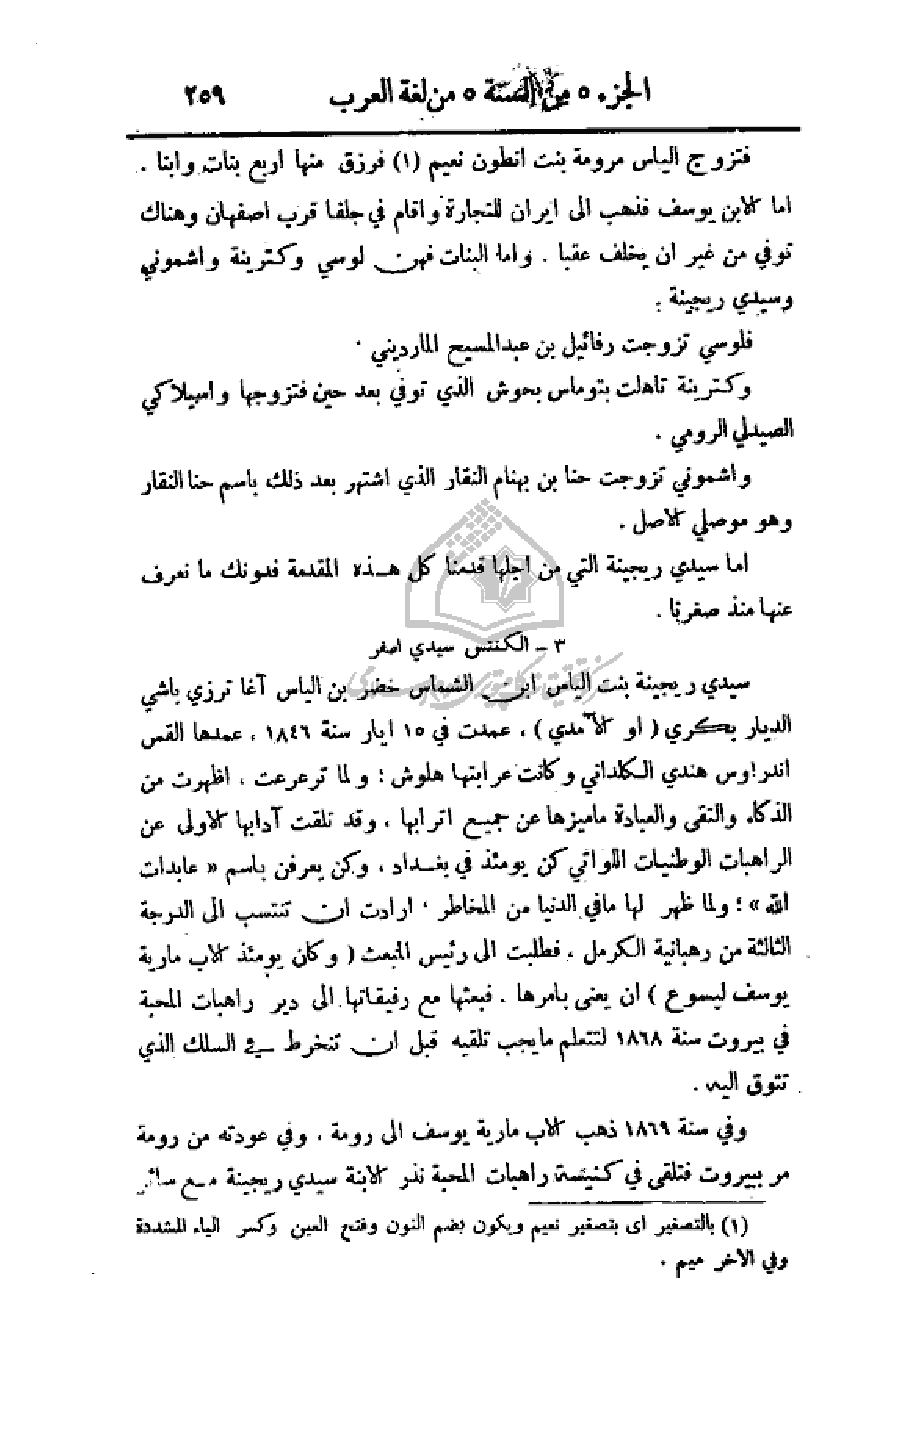 الجزء ٥ من السنة ٥ من لغة العرب ٢٥٩
فتزوج الياس مرومة بنت انطون نعيم (١) فرزق منها اربع بنات وابنا .
اما الابن يوسف فذهب الى ايران للتجارة واقام في جلفا قرب اصفهان وهناك
توفي من غير ان يخلف عقبا . واما البنات فهن لوسي وكترينة واشموني
وسيدي ريجينة .
فلوسي تزوجت رفائيل بن عبدالمسيح المارديني .
وكترينة تاهلت بتوماس بحوش الذي توفي بعد حين فتزوجها واميلاكي
الصيدلي الرومي .
واشموني تزوجت حنا بن بهنام النقار الذي اشتهر بعد ذلك باسم حنا النقار
وهو موصلي الاصل .
اما سيدي ريجينة التي من اجلها قدمنا كل هذه المقدمة فدونك ما نعرف
عنها منذ صغرها .
٣ – الكنتس سيدي اصفر
سيدي ريجينة بنت الياس ابن الشماس خضر بن الياس آغا ترزي باشي
الديار بكري ( او الآمدي ) ، عمدت في ١٥ ايار سنة ١٨٤٦ ، عمدها القس
اندراوس هندي الكلداني وكانت عرابتها هلوش ؛ ولما ترعرعت ، اظهرت من
الذكاء والتقى والعبادة ماميزها عن جميع اترابها ، وقد تلقت آدابها الاولى عن
الراهبات الوطنيات اللواتي كن يومئذ في بغداد ، وكن يعرفن باسم « عابدات
الله » ؛ ولما ظهر لها مافي الدنيا من المخاطر ' ارادت ان تنتسب الى الدرجة
الثالثة من رهبانية الكرمل ، فطلبت الى رئيس المبعث ( وكان يومئذ الاب مارية
يوسف ليسوع ) ان يعنى بامرها . فبعثها مع رفيقاتها الى دير راهبات المحبة
في بيروت سنة ١٨٦٨ لتتعلم مايجب تلقيه قبل ان تنخرط في السلك الذي
تتوق اليه .
وفي سنة ١٨٦٩ ذهب الاب مارية يوسف الى رومة ، وفي عودته من رومة
مر ببيروت فتلقى في كنيسة راهبات المحبة نذر الابنة سيدي ريجينة مع سائر
(١) بالتصغير اى بتصغير نعيم ويكون بضم النون وفتح العين وكسر الياء المشددة
وفي الآخر ميم .